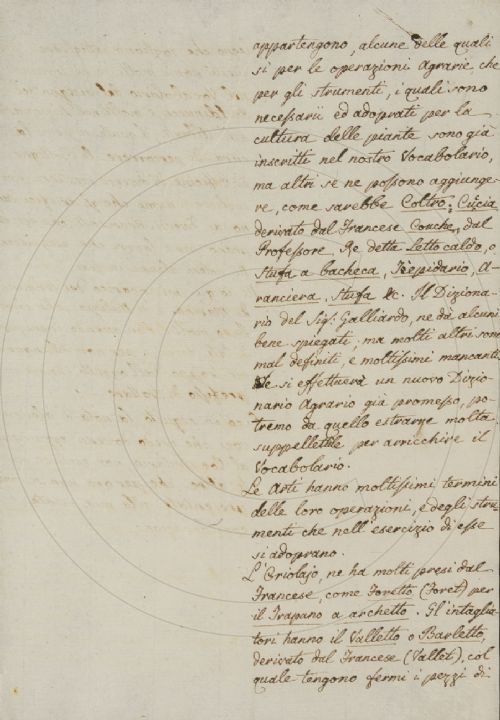 appartengono, alcune delle quali
si per le operazioni Agrarie che
per gli strumenti, i quali sono
necessarii ed adoprati per la
cultura delle piante sono già
inscritti nel nostro Vocabolario,
ma altri se ne possono aggiunge-
re, come sarebbe Coltro; Cuccia
derivato dal Francese Couche, dal
Professore Re detta Letto caldo, o
Stufa a bacheca, Tepidario, A-
ranciera, Stufa &c. Il Diziona-
rio del Sig. Galliardo, ne dà alcuni
bene spiegati; ma molti altri sono
mal definiti, e moltissimi mancanti
Se si effettuerà un nuovo Dizio-
nario Agrario già promesso, po-
tremo da quello estrarne molta
suppellettile per arricchire il
Vocabolario.
Le Arti hanno moltissimi termini
delle loro operazioni, e degli stru-
menti che nell'esercizio di esse
si adoprano.
L'Oriolajo, ne ha molti presi dal
Francese, come Foretto (Foret) per
il Trapano a archetto. Il intaglia-
tori hanno il Valletto o Barletto,
derivato dal Francese (Vallet), col
quale tengono fermi i pezzi di